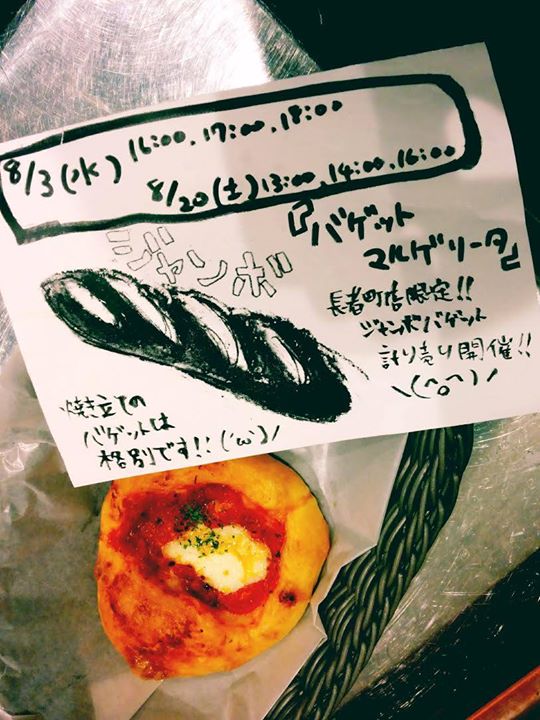 8/3(水) 16:00, 17:00, 18:00
8/20(土) 13:00, 14:00, 16:00
『バゲット
マルゲリータ』
ジャンボ
長者町店限定!!
ジャンボバゲット
計り売り開催!!
\(^o^)/
焼き立ての
バゲットは
格別です!!('ω')/